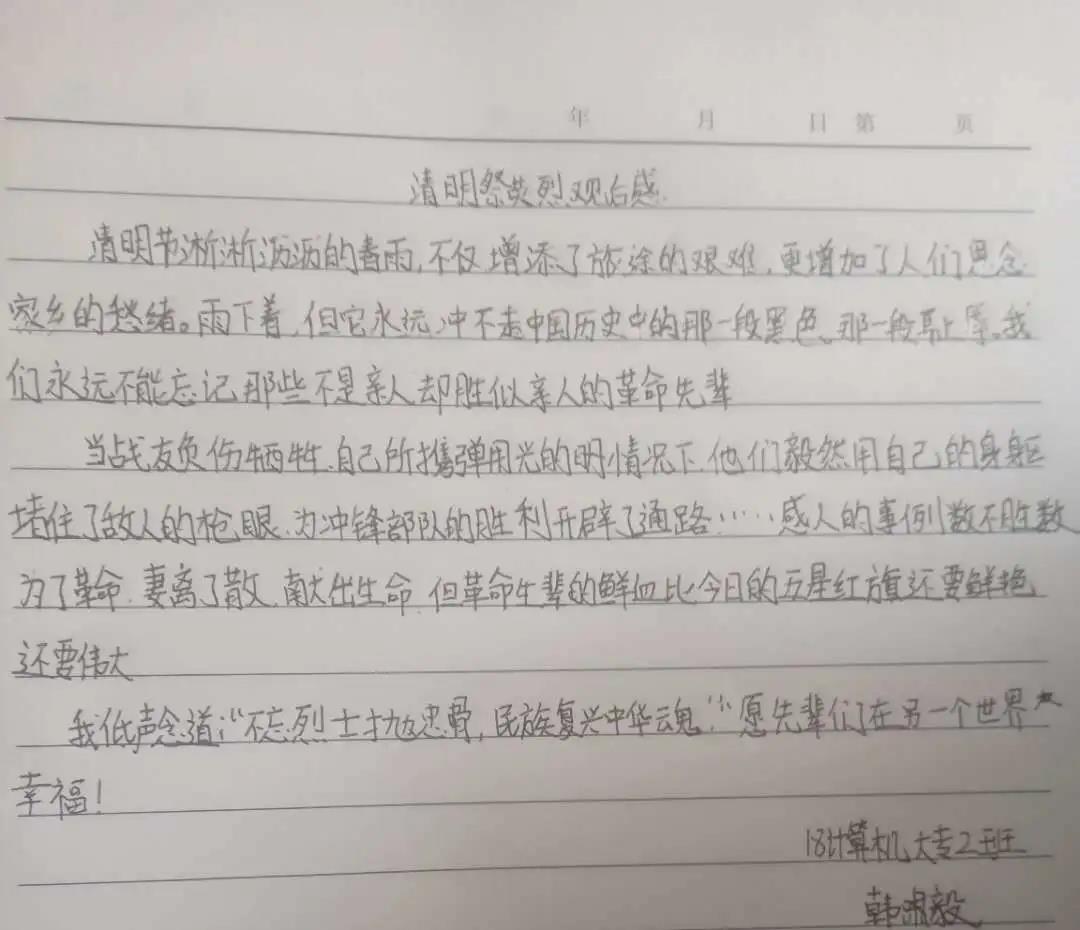 年 月 日 第 页
清明祭英烈观后感
清明节淅淅沥沥的春雨,不仅增添了旅途的艰难,更增加了人们思念
家乡的愁绪。雨下着,但它永远冲不走中国历史中的那一段黑色、那一段耻辱。我
们永远不能忘记那些不是亲人却胜似亲人的革命先辈
当战友负伤牺牲,自己所携弹用光的明情况下,他们毅然用自己的身躯
堵住了敌人的枪眼,为冲锋部队的胜利开辟了通路……感人的事例数不胜数
为了革命,妻离子散,献出生命,但革命先辈的鲜血比今日的五星红旗还要鲜艳
还要伟大
我低声念道:“不忘烈士抛忠骨,民族复兴中华魂”愿先辈们在另一个世界
幸福!
18计算机大专2班
韩肃毅